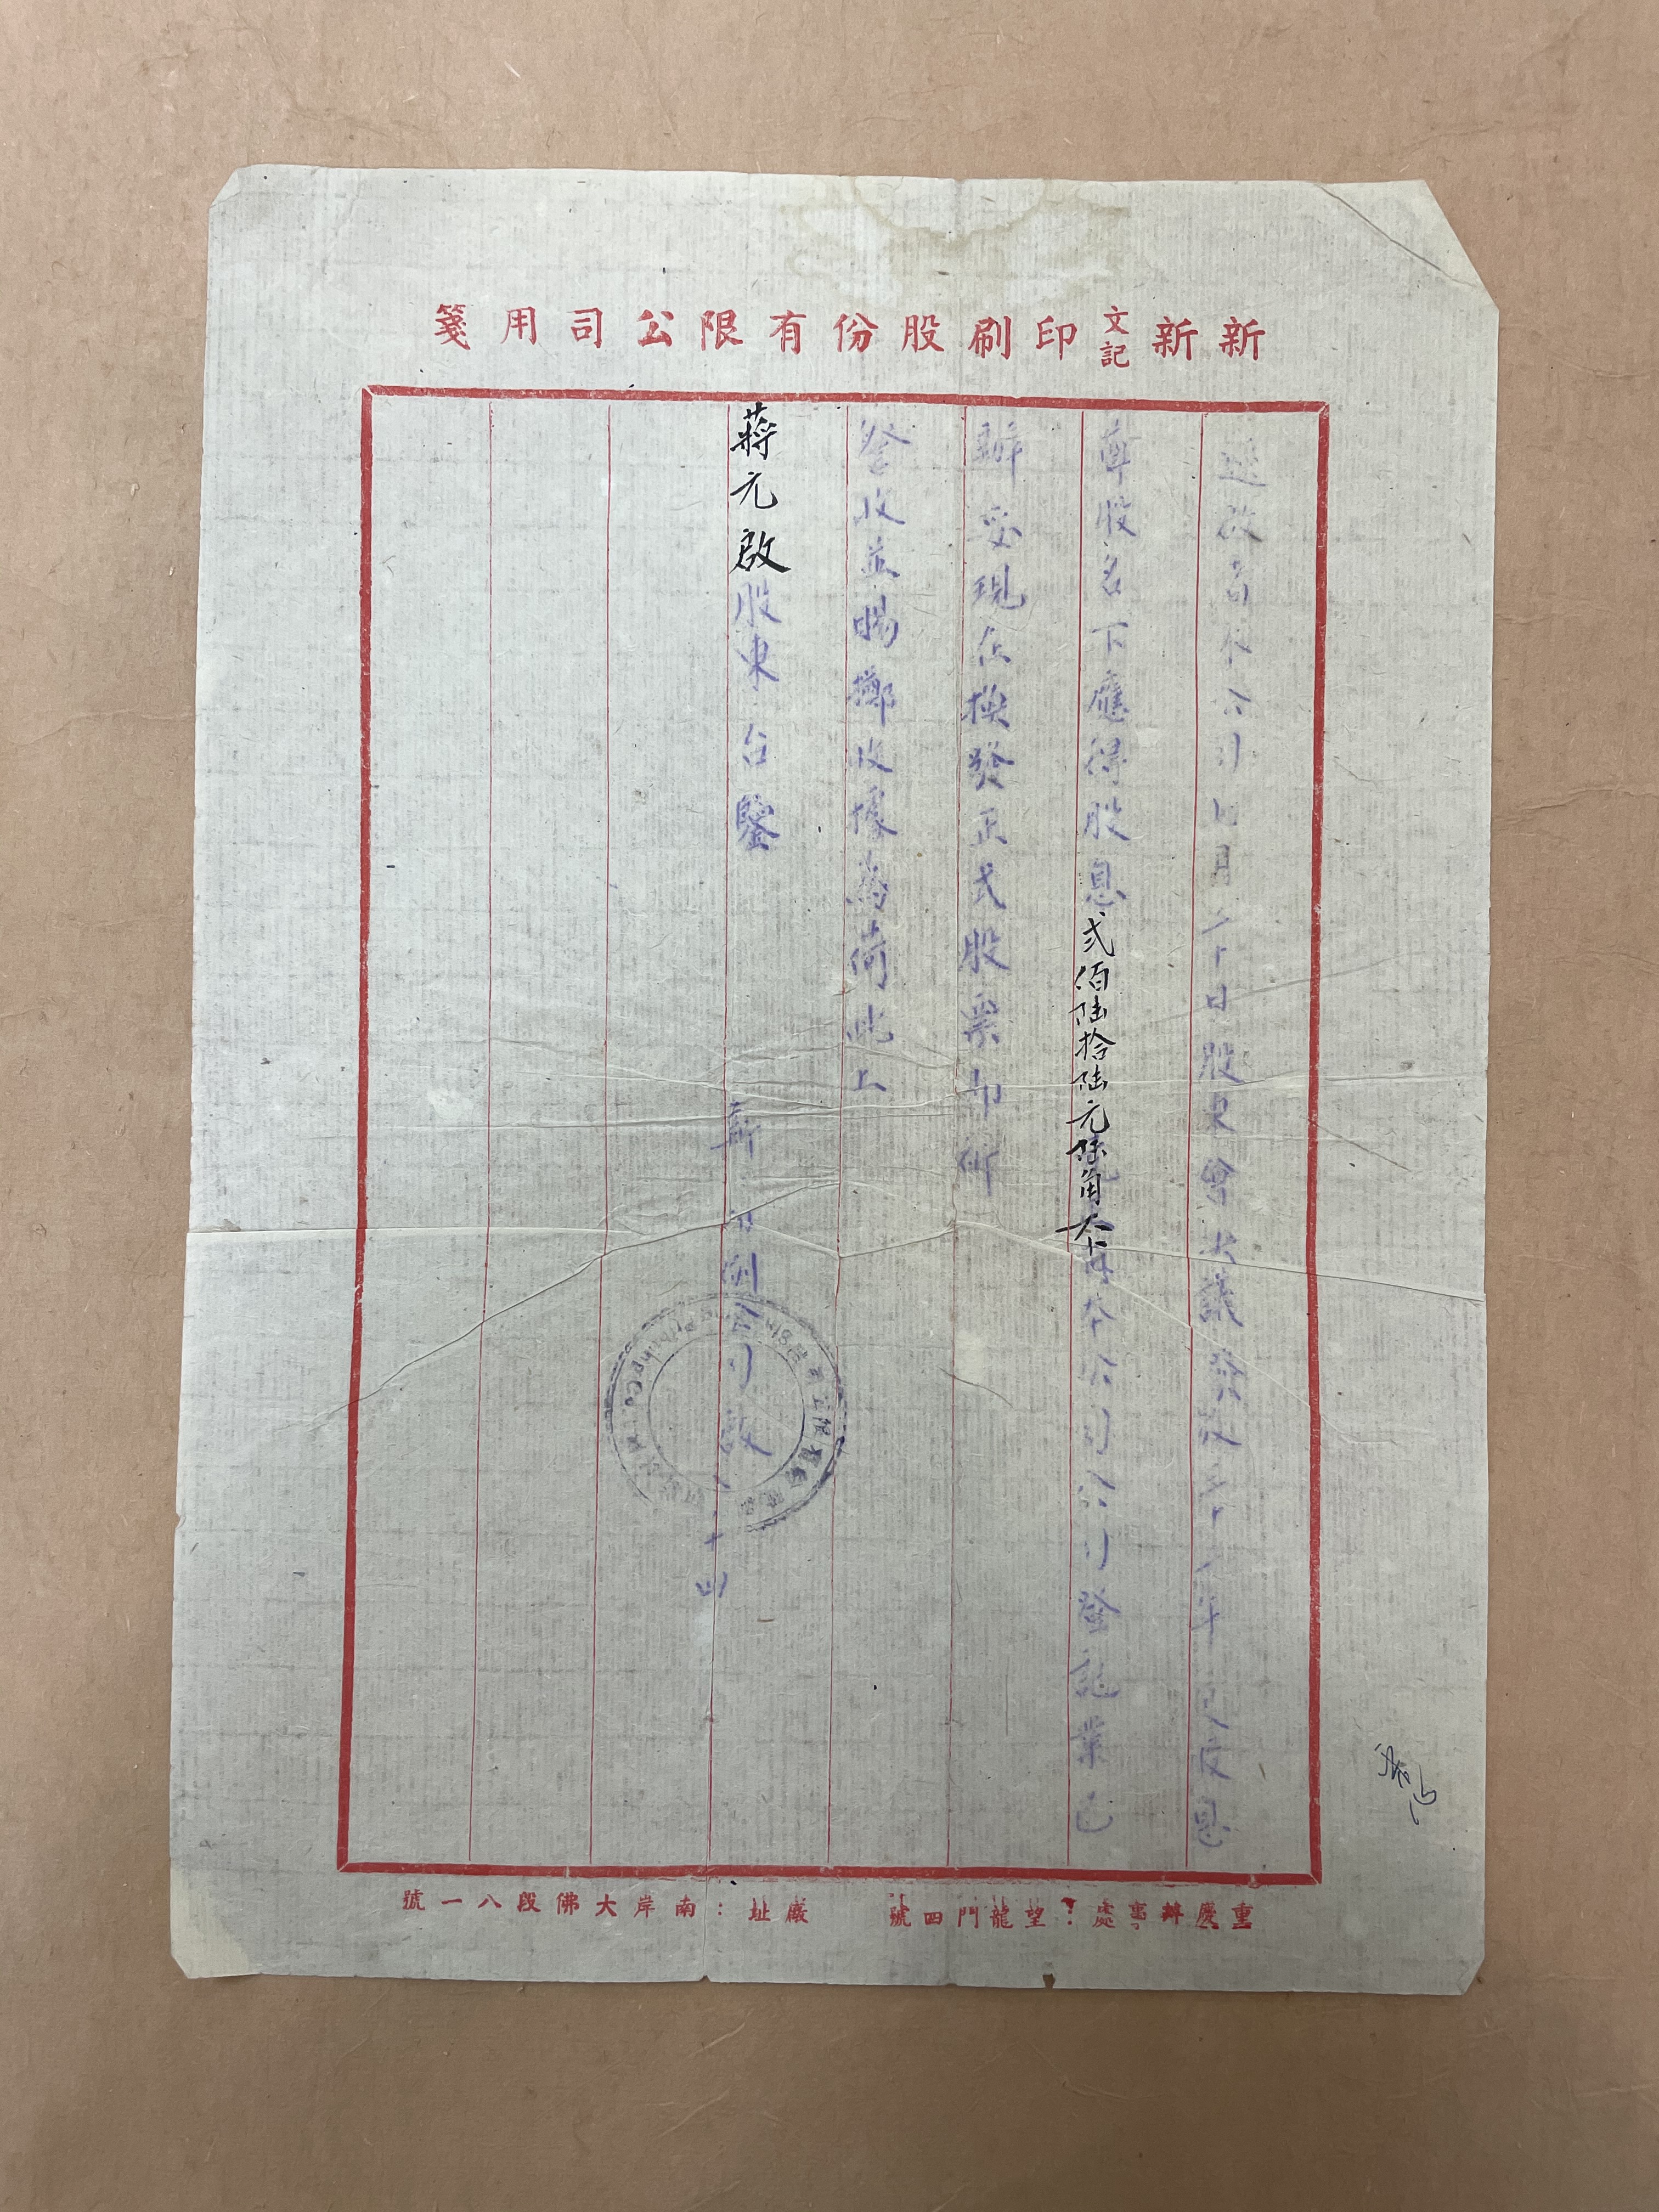 新新文記印刷股份有限公司用箋
逕啟者本公司七月二十日股東會決議發放三十 年 度息
尊股名下應得股息貳佰陸拾陸元陸角 本公司 登誌業已
辦妥現在換發正式股票即祈
詧收並賜擲收據為荷此上
蔣元啟股東台鑒
新 公司啟 十四
重慶辦事處：望龍門四號 廠址：南岸大佛段八一號